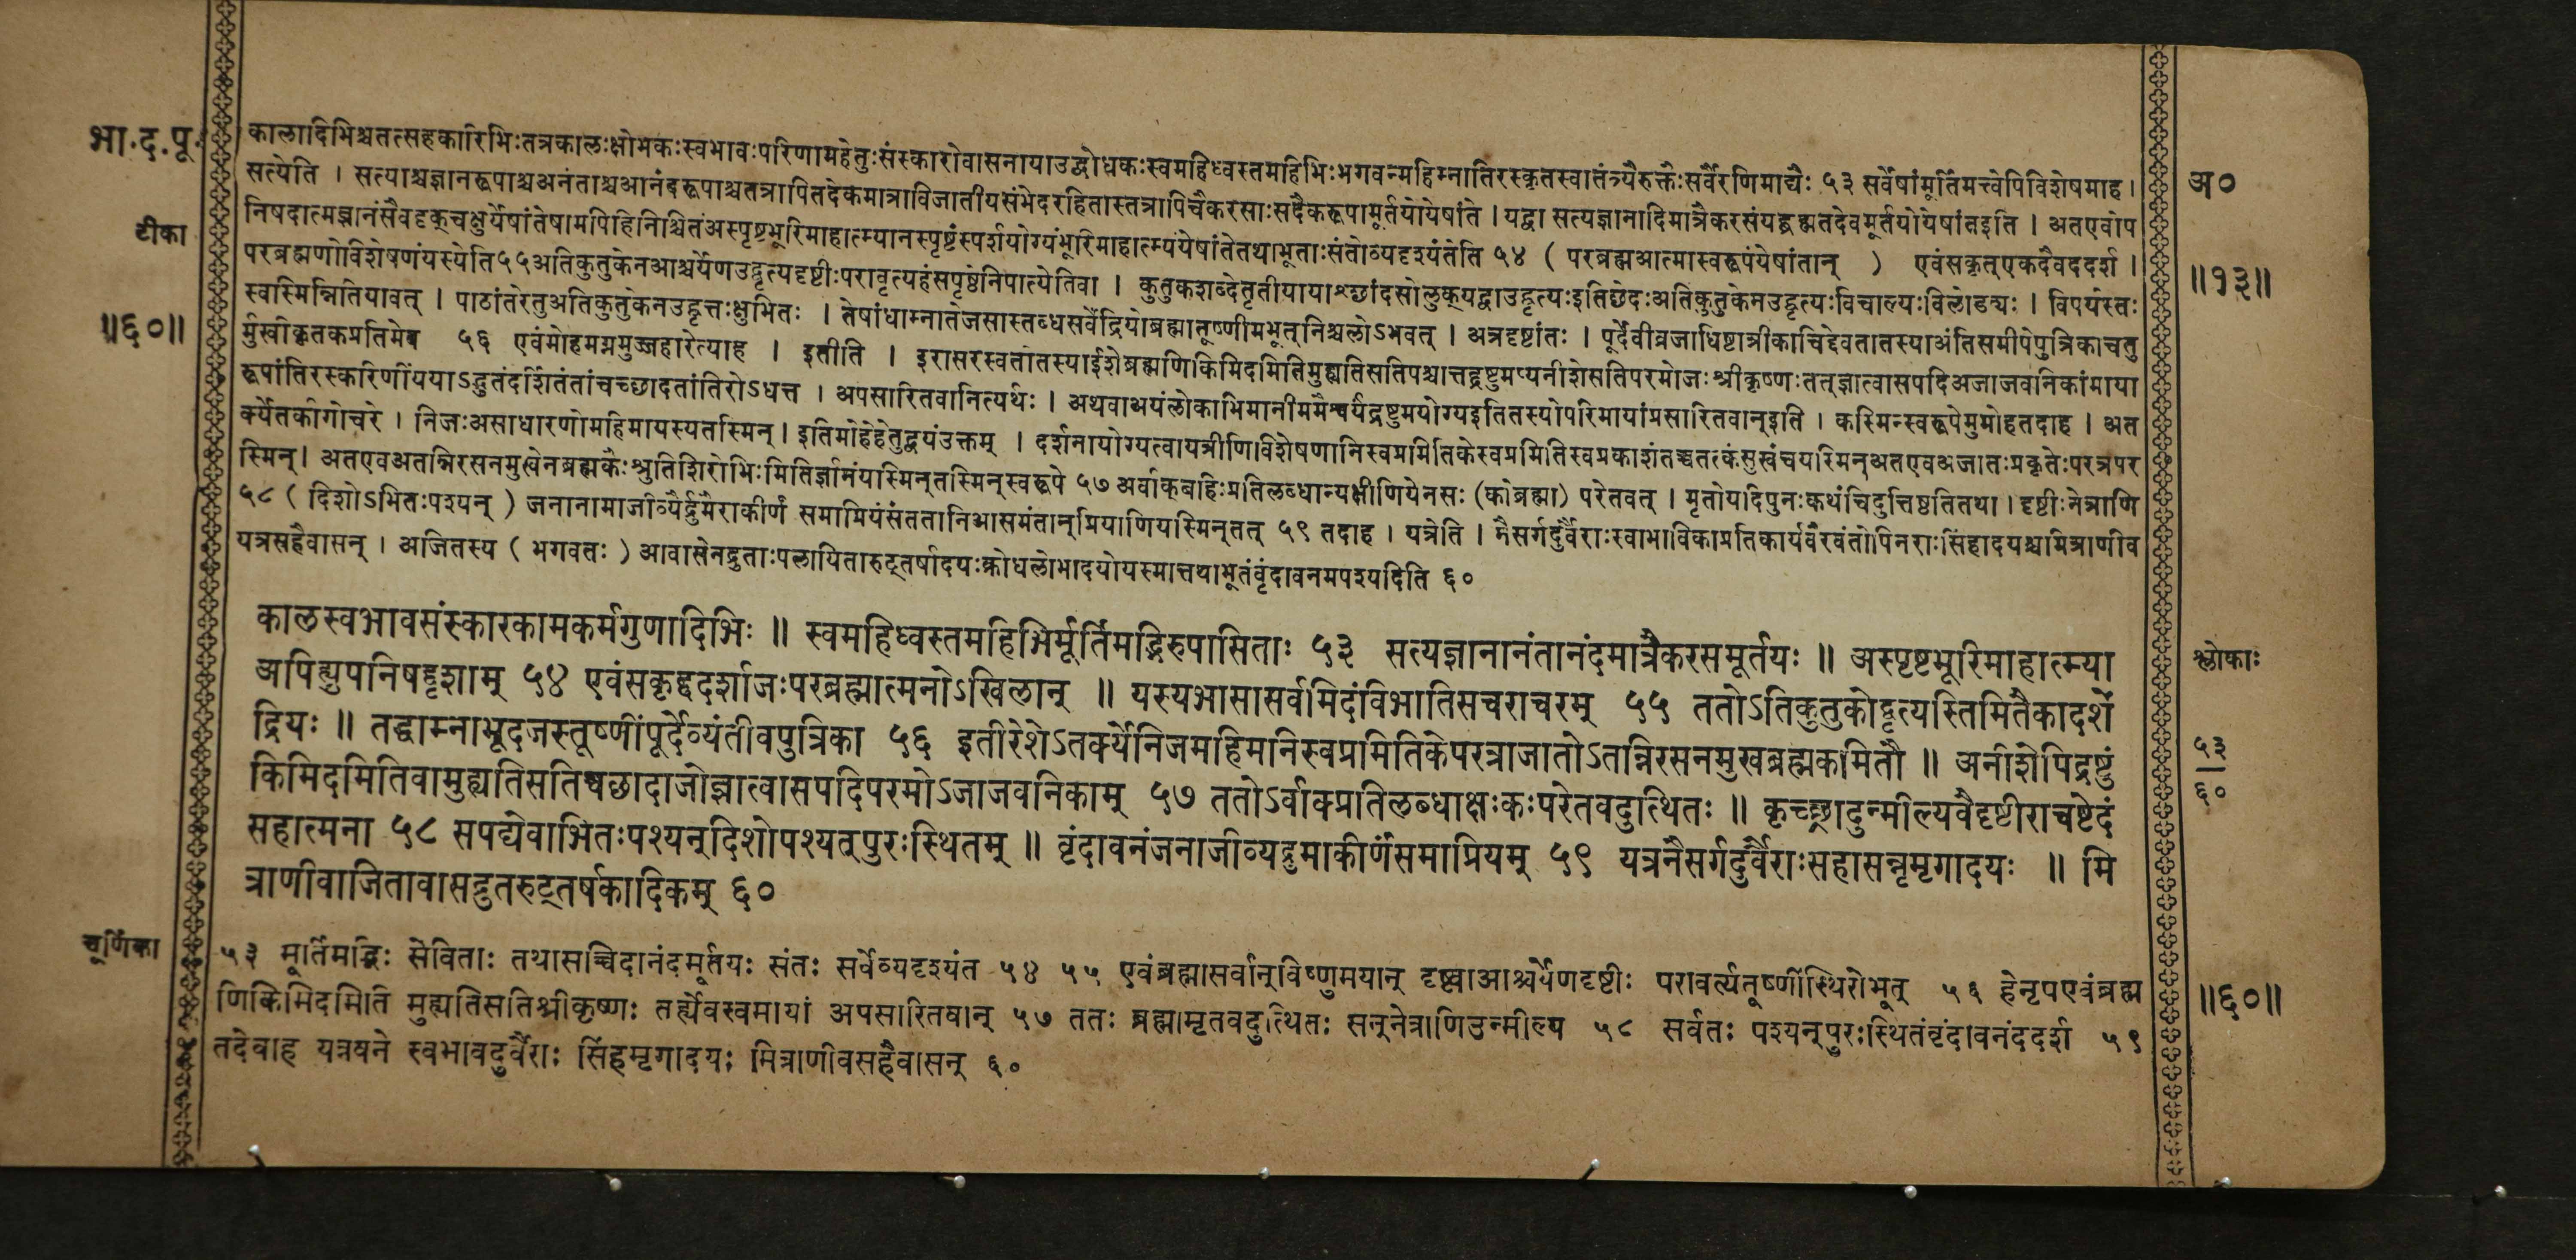 भा.द.पू.
कालादिभिश्चतत्सहकारिभिःतत्रकालःक्षोभकःस्वभावःपरिणामहेतुःसंस्कारोवासनायाउद्बोधकःस्वमहिध्वस्तमहिभिःभगवन्महिम्नातिरस्कृतस्वातंत्र्यैरुक्तैःसर्वैरणिमाद्यैः ५३ सर्वेषांमूर्तिमत्त्वेपिविशेषमाह ।
अ०
सत्येति । सत्याश्चज्ञानरूपाश्चअनंताश्चआनंदरूपाश्चतत्रापितदेकमात्राविजातीयसंभेदरहितास्तत्रापिचैकरसाःसदैकरूपामूर्तयोयेषांते । यद्वा सत्यज्ञानादिमात्रैकरसंयद्ब्रह्मतदेवमूर्तयोयेषांतइति । अतएवोप
टीका
निषदात्मज्ञानंसैवदृक्चक्षुर्येषांतेषामपिहिनिश्चितंअस्पृष्टभूरिमाहात्म्यानस्पृष्टंस्पर्शयोग्यंभूरिमाहात्म्यंयेषांतेतथाभूताःसंतोव्यदृश्यंतेति ५४ ( परब्रह्मआत्मास्वरूपंयेषांतान् ) एवंसकृत्एकदैवददर्श ।
॥१३॥
परब्रह्मणोविशेषणंयस्येति५५अतिकुतुकेनआश्चर्येणउद्वृत्यदृष्टीःपरावृत्यहंसपृष्ठेनिपात्येतिवा । कुतुकशब्देतृतीयायाश्छांदसोलुक्यद्वाउद्वृत्यःइतिछेदःअतिकुतुकेनउद्वृत्यःविचाल्यःविलोड्यः । विपर्यस्तः
॥६०॥
स्वस्मिन्नितियावत् । पाठांतरेतुअतिकुतुकेनउद्वृत्तःक्षुभितः । तेषांधाम्नातेजसास्तब्धसर्वेंद्रियोब्रह्मातूष्णीमभूत्निश्चलोऽभवत् । अत्रदृष्टांतः । पूर्देवीव्रजाधिष्टात्रीकाचिद्देवतातस्याअंतिसमीपेपुत्रिकाचतु
र्मुखीकृतकप्रतिमेव ५६ एवंमोहमग्नमुज्जहारेत्याह । इतीति । इरासरस्वतीतस्याईशेब्रह्मणिकिमिदमितिमुह्यतिसतिपश्चात्तद्द्रष्टुमप्यनीशेसतिपरमोजःश्रीकृष्णःतत्ज्ञात्वासपदिअजाजवनिकांमाया
रूपांतिरस्करिणींययाऽद्भुतंदर्शितंतांचच्छादतांतिरोऽधत्त । अपसारितवानित्यर्थः । अथवाअयंलोकाभिमानीममैश्वर्यंद्रष्टुमयोग्यइतितस्योपरिमायांप्रसारितवान्इति । कस्मिन्स्वरूपेमुमोहतदाह । अत
र्क्येतर्कागोचरे । निजःअसाधारणोमहिमायस्यतस्मिन् । इतिमोहेहेतुद्वयंउक्तम् । दर्शनायोग्यत्वायत्रीणिविशेषणानिस्वप्रमितिकेस्वप्रमितिस्वप्रकाशंतच्चतत्कंसुखंचयस्मिन्अतएवअजातःप्रकृतेःपरत्रपर
स्मिन् । अतएवअतन्निरसनमुखेनब्रह्मकैःश्रुतिशिरोभिःमितिर्ज्ञानंयस्मिन्तस्मिन्स्वरूपे ५७ अर्वाक्बहिःप्रतिलब्धान्यक्षीणियेनसः (कोब्रह्मा) परेतवत् । मृतोयदिपुनःकथंचिदुत्तिष्ठतितथा । दृष्टीःनेत्राणि
५८ ( दिशोऽभितःपश्यन् ) जनानामाजीव्यैर्द्रुमैराकीर्णं समामियंसंततानिआसमंतान्प्रियाणियस्मिन्तत् ५९ तदाह । यत्रेति । नैसर्गदुर्वैराःस्वाभाविकाप्रतिकार्यवैरवंतोपिनराःसिंहादयश्चमित्राणीव
यत्रसहैवासन् । अजितस्य ( भगवतः ) आवासेनद्रुताःपलायितारुट्तर्षादयःक्रोधलोभादयोयस्मात्तथाभूतंवृंदावनमपश्यदिति ६०
कालस्वभावसंस्कारकामकर्मगुणादिभिः ॥ स्वमहिध्वस्तमहिभिर्मूर्तिमद्भिरुपासिताः ५३ सत्यज्ञानानंतानंदमात्रैकरसमूर्तयः ॥ अस्पृष्टभूरिमाहात्म्या
श्लोकाः
अपिह्युपनिषद्दृशाम् ५४ एवंसकृद्ददर्शाजःपरब्रह्मात्मनोऽखिलान् ॥ यस्यभासासर्वमिदंविभातिसचराचरम् ५५ ततोऽतिकुतुकोद्वृत्यस्तिमितैकादशें
द्रियः ॥ तद्धाम्नाभूदजस्तूष्णींपूर्देव्यंतीवपुत्रिका ५६ इतीरेशेऽतर्क्येनिजमहिमनिस्वप्रमितिकेपरत्राजातोऽतन्निरसनमुखब्रह्मकमितौ ॥ अनीशेपिद्रष्टुं
५३
६०
किमिदमितिवामुह्यतिसतिचछादाजोज्ञात्वासपदिपरमोऽजाजवनिकाम् ५७ ततोऽर्वाक्प्रतिलब्धाक्षःकःपरेतवदुत्थितः ॥ कृच्छ्रादुन्मील्यवैदृष्टीराचष्टेदं
सहात्मना ५८ सपद्येवाभितःपश्यन्दिशोपश्यत्पुरःस्थितम् ॥ वृंदावनंजनाजीव्यद्रुमाकीर्णंसमाप्रियम् ५९ यत्रनैसर्गदुर्वैराःसहासन्नृमृगादयः ॥ मि
त्राणीवाजितावासद्रुतरुट्तर्षकादिकम् ६०
चूर्णिका
५३ मूर्तिमद्भिः सेविताः तथासच्चिदानंदमूर्तयः संतः सर्वेव्यदृश्यंत ५४ ५५ एवंब्रह्मासर्वान्विष्णुमयान् दृष्ट्वाआश्चर्येणदृष्टीः परावर्त्यतूष्णींस्थिरोभूत् ५६ हेनृपएवंब्रह्म
णिकिमिदमिति मुह्यतिसतिश्रीकृष्णः तर्ह्येवस्वमायां अपसारितवान् ५७ ततः ब्रह्मामृतवदुत्थितः सन्नेत्राणिउन्मील्य ५८ सर्वतः पश्यन्पुरःस्थितंवृंदावनंददर्श ५९
॥६०॥
तदेवाह यत्रवने स्वभावदुर्वैराः सिंहमृगादयः मित्राणीवसहैवासन् ६०